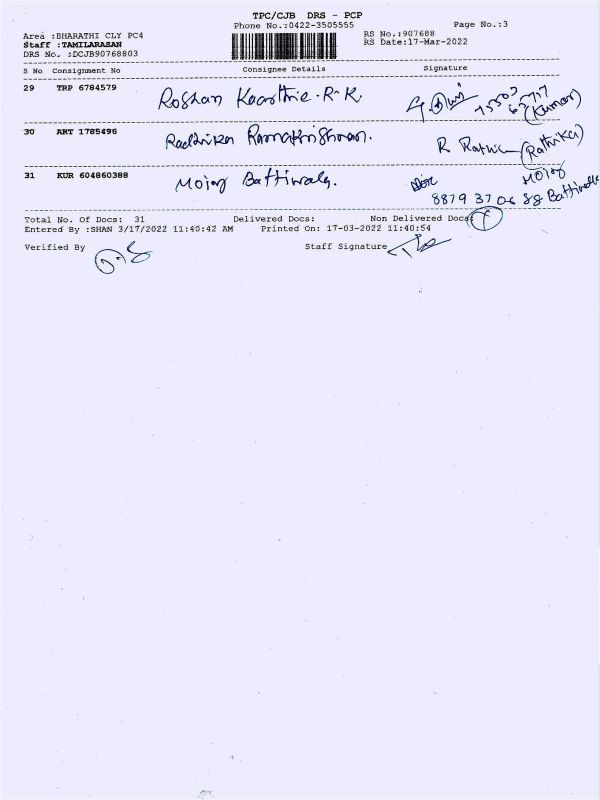 TPC/CJB DRS - PCP
Phone No.:0422-3505555 Page No.:3
Area :BHARATHI CLY PC4 RS No.:907688
Staff :TAMILARASAN RS Date:17-Mar-2022
DRS No. :DCJB90768803
S No Consignment No Consignee Details Signature
29 TRP 6784579 Roshan Kaarthic.R.K. (Kumar)
30 ART 1785496 Radhika Ramakrishnan. R (Rathika)
31 KUR 604860388 Moiz Battiwala. Moiz
8879 37 06 88 Battiwala
Total No. Of Docs: 31 Delivered Docs: Non Delivered Docs:
Entered By :SHAN 3/17/2022 11:40:42 AM Printed On: 17-03-2022 11:40:54
Verified By Staff Signature